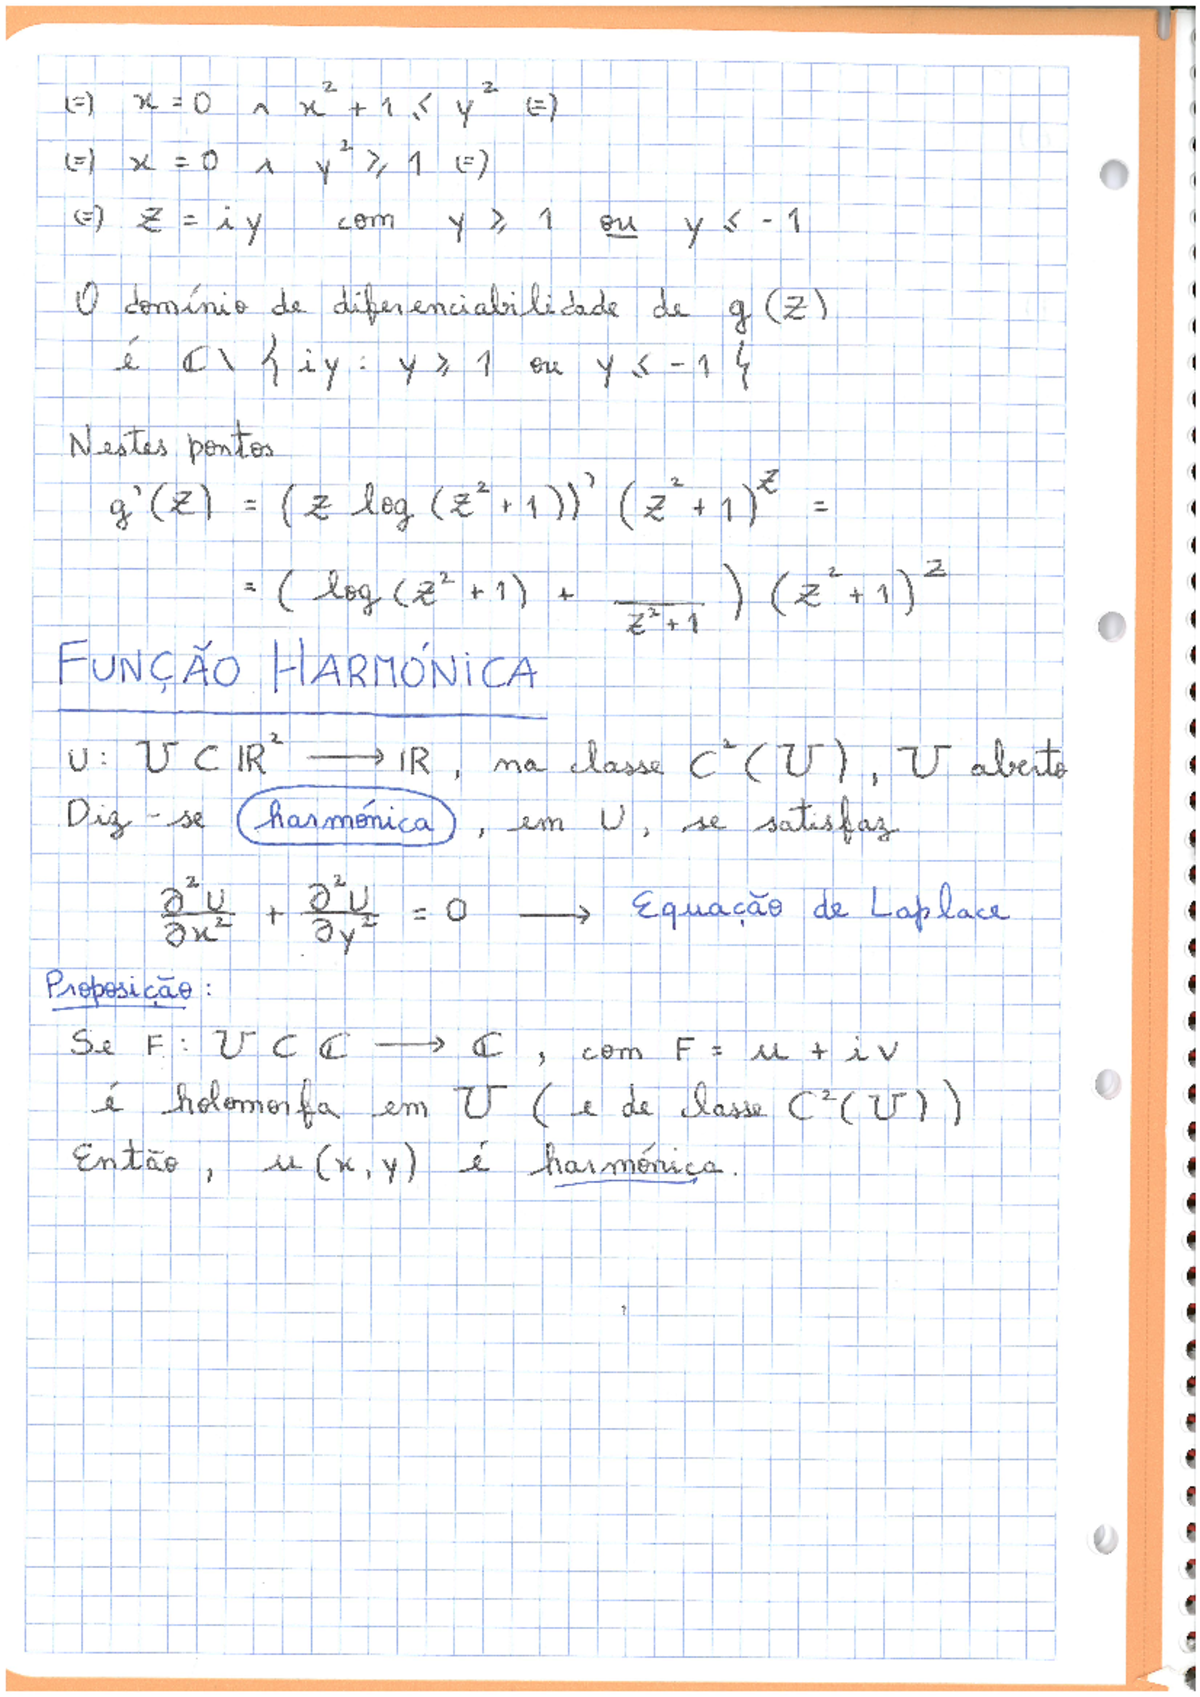 (=) x = 0 ∧ x² + 1 ≤ y² (=)
(=) x = 0 ∧ y² ≥ 1 (=)
(=) z = iy com y ≥ 1 ou y ≤ -1
O domínio de diferenciabilidade de g(z)
é ℂ \ { iy : y ≥ 1 ou y ≤ -1 }
Nestes pontos
g'(z) = (z log(z² + 1))' (z² + 1)^z =
= ( log(z² + 1) + ―/(z² + 1) ) (z² + 1)^z
FUNÇÃO HARMÓNICA
U : U ⊂ ℝ² ⟶ ℝ, na classe C²(U), U aberto
Diz-se harmónica, em U, se satisfaz
∂²U/∂x² + ∂²U/∂y² = 0 ⟶ Equação de Laplace
Proposição :
Se F : U ⊂ ℂ ⟶ ℂ, com F = u + iv
é holomorfa em U ( e de classe C²(U) )
Então, u(x, y) é harmónica.